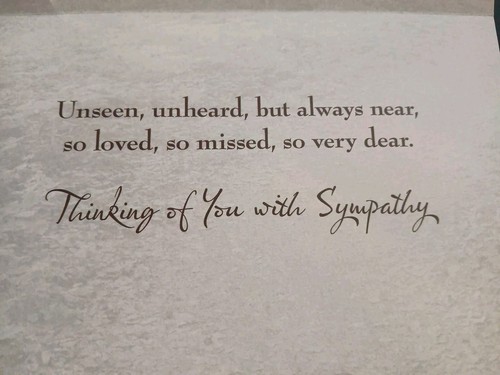 Unseen, unheard, but always near,
so loved, so missed, so very dear.
Thinking of You with Sympathy